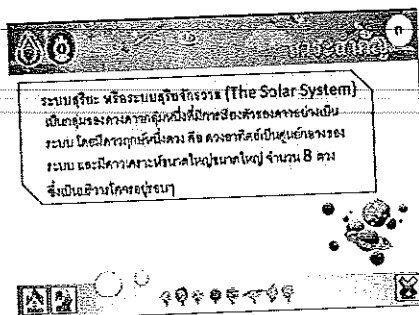 ก
ระบบสุริยะ หรือระบบสุริยจักรวาล (The Solar System)
เป็นกลุ่มของดวงดาวกลุ่มหนึ่งที่มีการเรียงตัวของดาวอย่างเป็น
ระบบ โดยมีดาวฤกษ์หนึ่งดวง คือ ดวงอาทิตย์เป็นศูนย์กลางของ
ระบบ และมีดาวเคราะห์ขนาดใหญ่ขนาดใหญ่ จำนวน 8 ดวง
ซึ่งเป็นบริวารโคจรอยู่รอบๆ